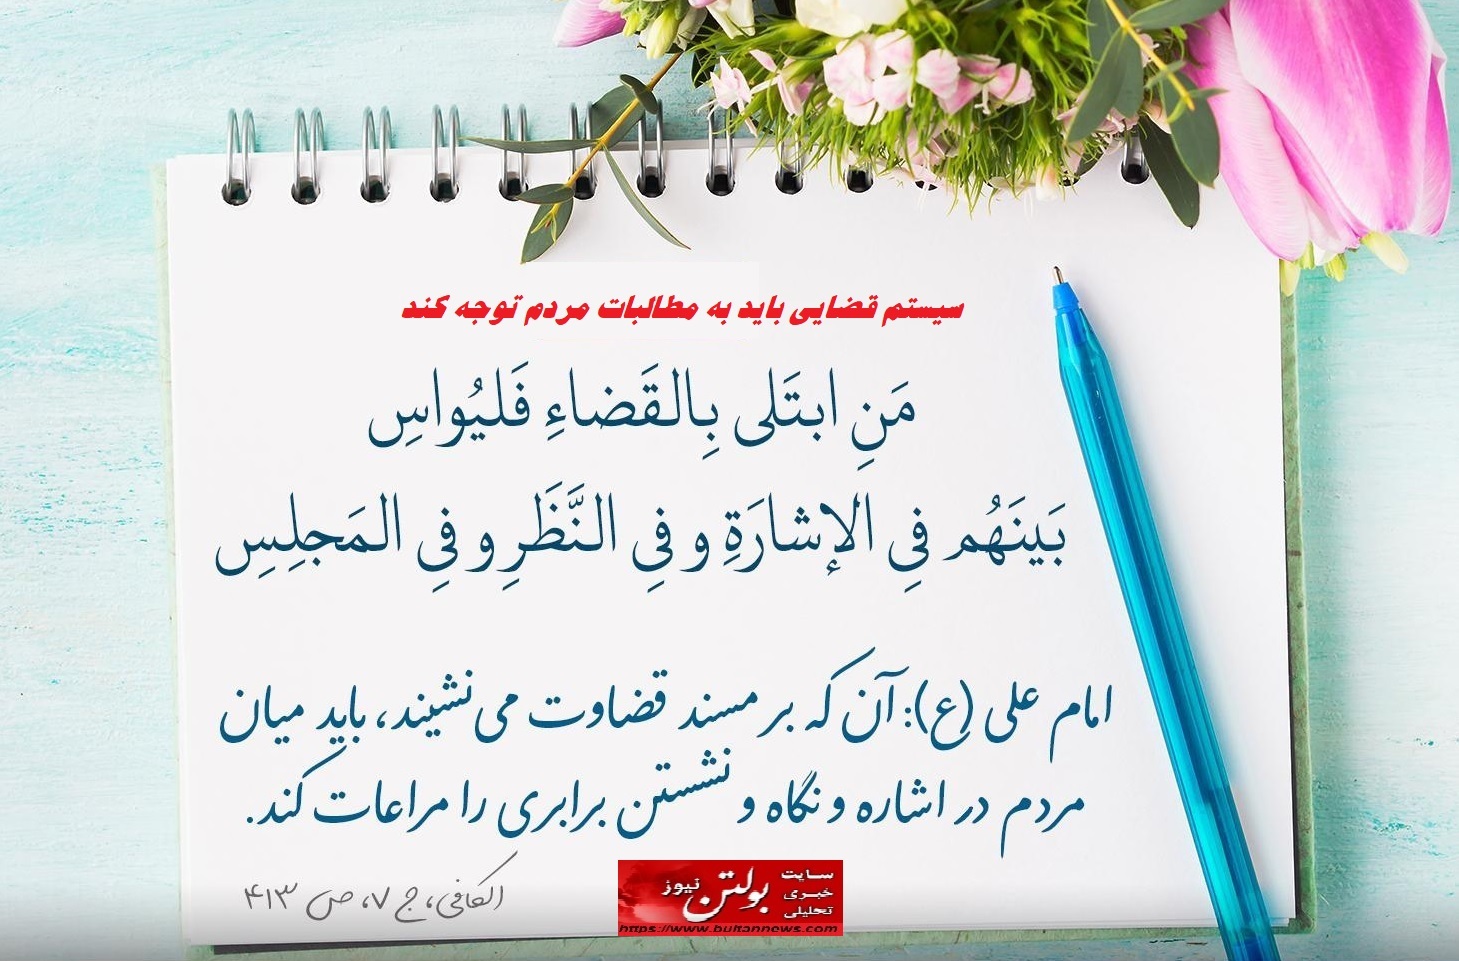 سیستم قضایی باید به مطالبات مردم توجه کند
مَنِ ابتَلی بِالقَضاءِ فَلیُواسِ
بَینَهُم فِی الإشارَةِ و فِی النَّظَرِ و فِی المَجلِسِ
امام علی (ع): آن که بر مسند قضاوت می‌نشیند، باید میان
مردم در اشاره و نگاه و نشستن برابری را مراعات کند.
الکافی، ج ۷، ص ۴۱۳
سایت
خبری
تحلیلی
بولتن نیوز
https://www.bultannews.com